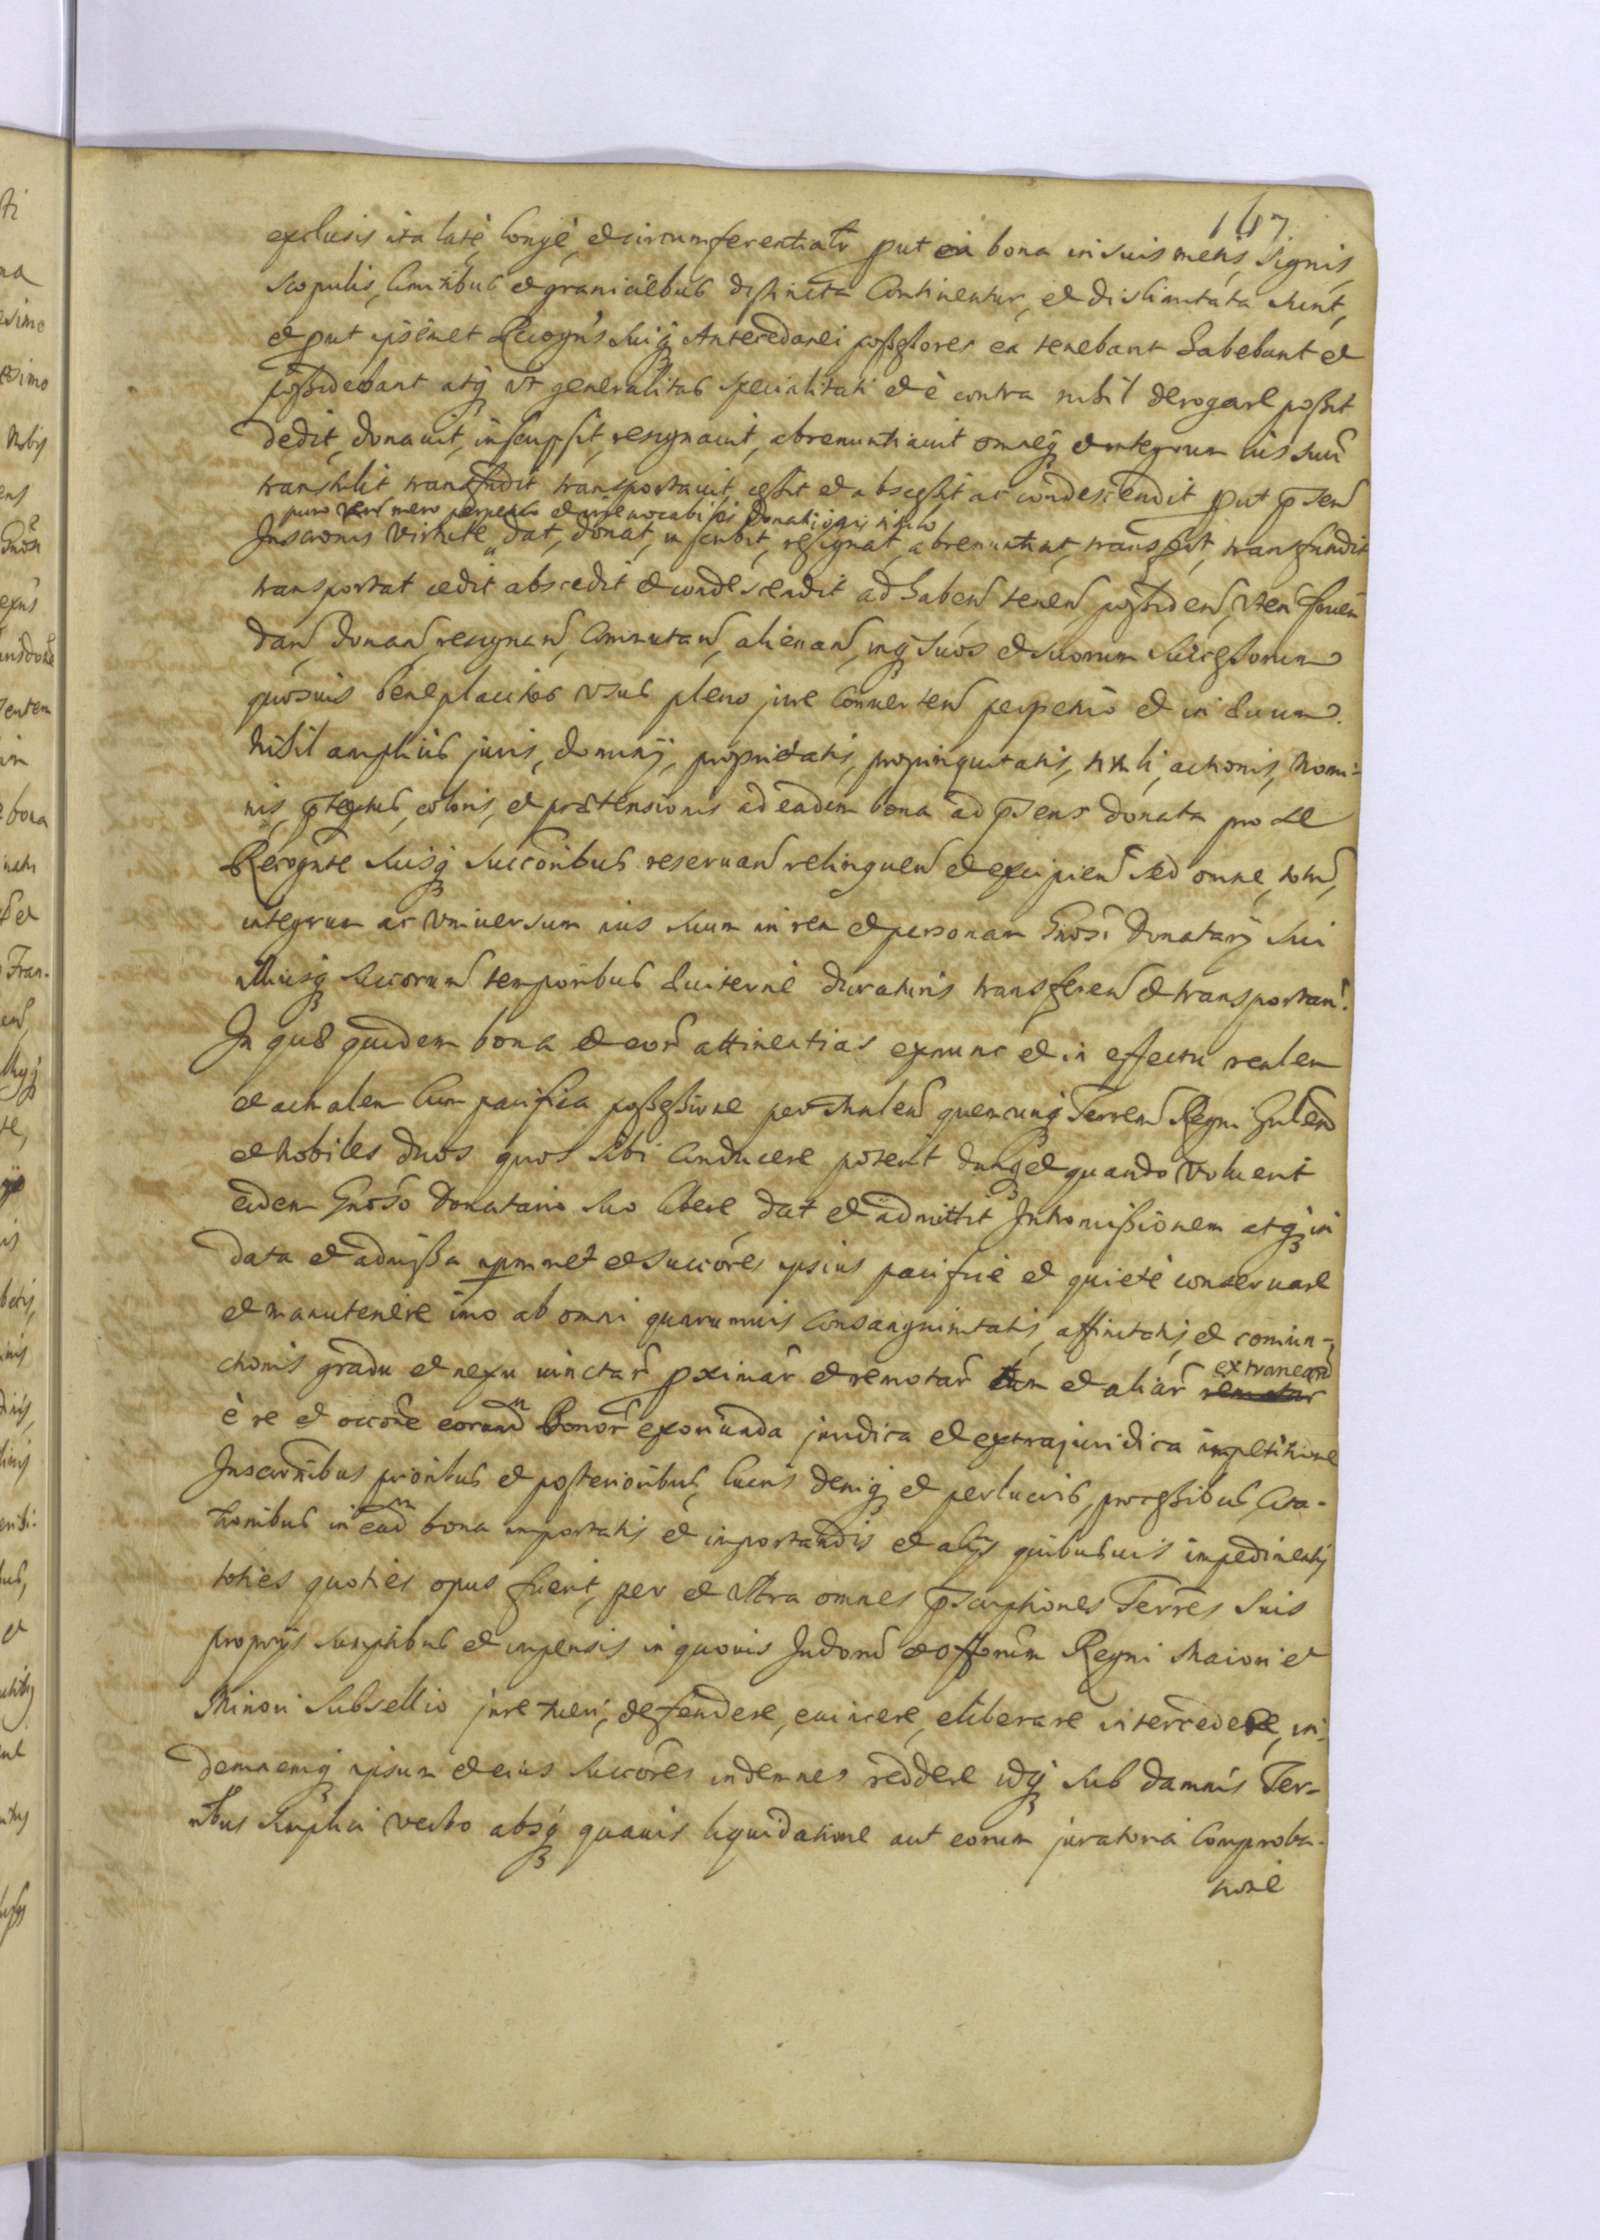 147
exclusis ita late, longe, et circumferentialr put ea bona in suis metis, signis,
scopulis, limitibus et graniciebus distincta continentur, et dislimitata sunt,
et put ipsemet Recogns suiq Antecedanei possessores ea tenebant habebant et
possidebant atq ut generalitas specialitati et è contra nihil derogare possit
dedit, donavit, inscripsit, resignavit, abrenuntiavit omneq et integrum ius suũ
transtulit transfudit transportavit, cessit et abscessit ac condescendit put pñsen
puro vero mero perpetuo et irrevocabilis donationis titulo
Inscronis virtute dat, donat, inscribit, resignat, abrenuntiat, transfert, transfundit
transportat cedit abscedit et condescendit ad haben tenen possiden, uten fruen
dan, donan resignan, commutan, alienan, inq suos et suorum successorum
quosvis beneplacitos usus pleno jure converten perpetuò et in ævum.
Nihil amplius juris, dominij, proprietatis, propinquitatis, tituli, actionis, nomi-
nis, ptextus, coloris, et prætensionis ad eadem bona ad pñsens donata pro se
Recognte suisq succoribus reservan relinquen et excipien sed omne, totu,
integrum ac universum ius suum in rem et personam Gnosi Donatarij sui
illiusq succorum temporibus æviterne duraturis transferen et transportan.
In quæ quidem bona et eor attinentias exnunc et in effectu realem
et actualem cum pacifica possessione per Mnlem quemcunq Terrem Regni Gnlem
et Nobiles duos quos sibi conducere poterit dum et quando voluerit
eidem Gnoso Donatario suo libere dat et admittit Intromissionem atq in
data et admissa ipmmet et succores ipsius pacifice et quiete conservare
et manutenere imo ab omni quarumvis consanguinitatis, affinitatis, et coniun-
ctionis gradu et nexu iunctar pximar et remotar tum et aliar remotar extranear
è re et occone eorund bonor exoriunda juridica et extrajuridica impetitione
Inscronibus prioribus et posterioribus, lucris deniq et perlucris, processibus, cita-
tionibus in ead bona importatis et importandis et alijs quibusvis impedimentis
toties quoties opus fuerit, per et ultra omnes pscriptiones Terres suis
proprijs sumptibus et impensis in quovis Judior et Offorum Regni Maiori et
Minori subsellio jure tueri, defendere, evincere, eliberare intercedere, in-
demnemq ipsum et eius succores indemnes reddere idq sub damnis Ter-
ribus simplici verbo absq quavis liquidatione aut eorum juratoria comproba-
tione